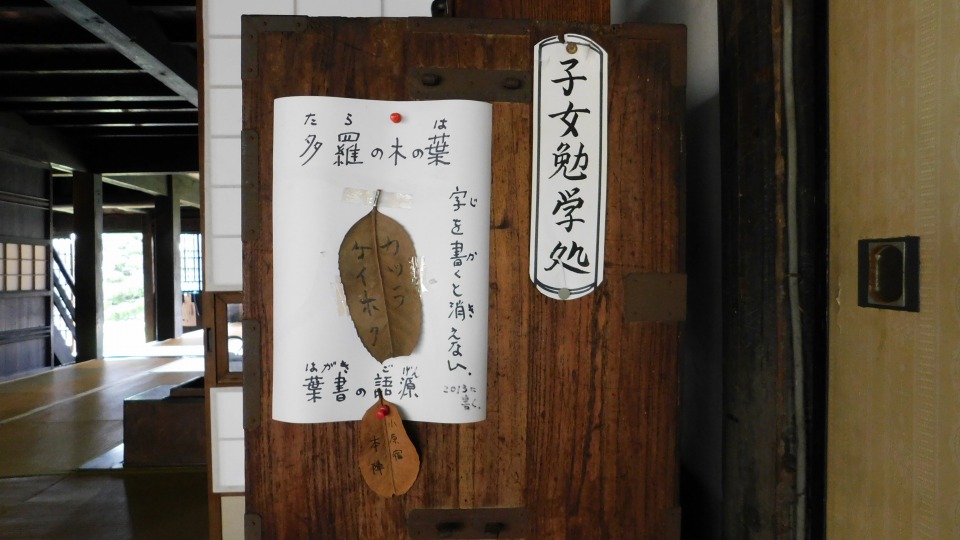 子女勉学処
たら は
多羅の木の葉
字を書くと消えない。
じ か き
カツラ
ケイホク
はがき ごげん
葉書の語源
2013に
書く。
小原宿
本陣